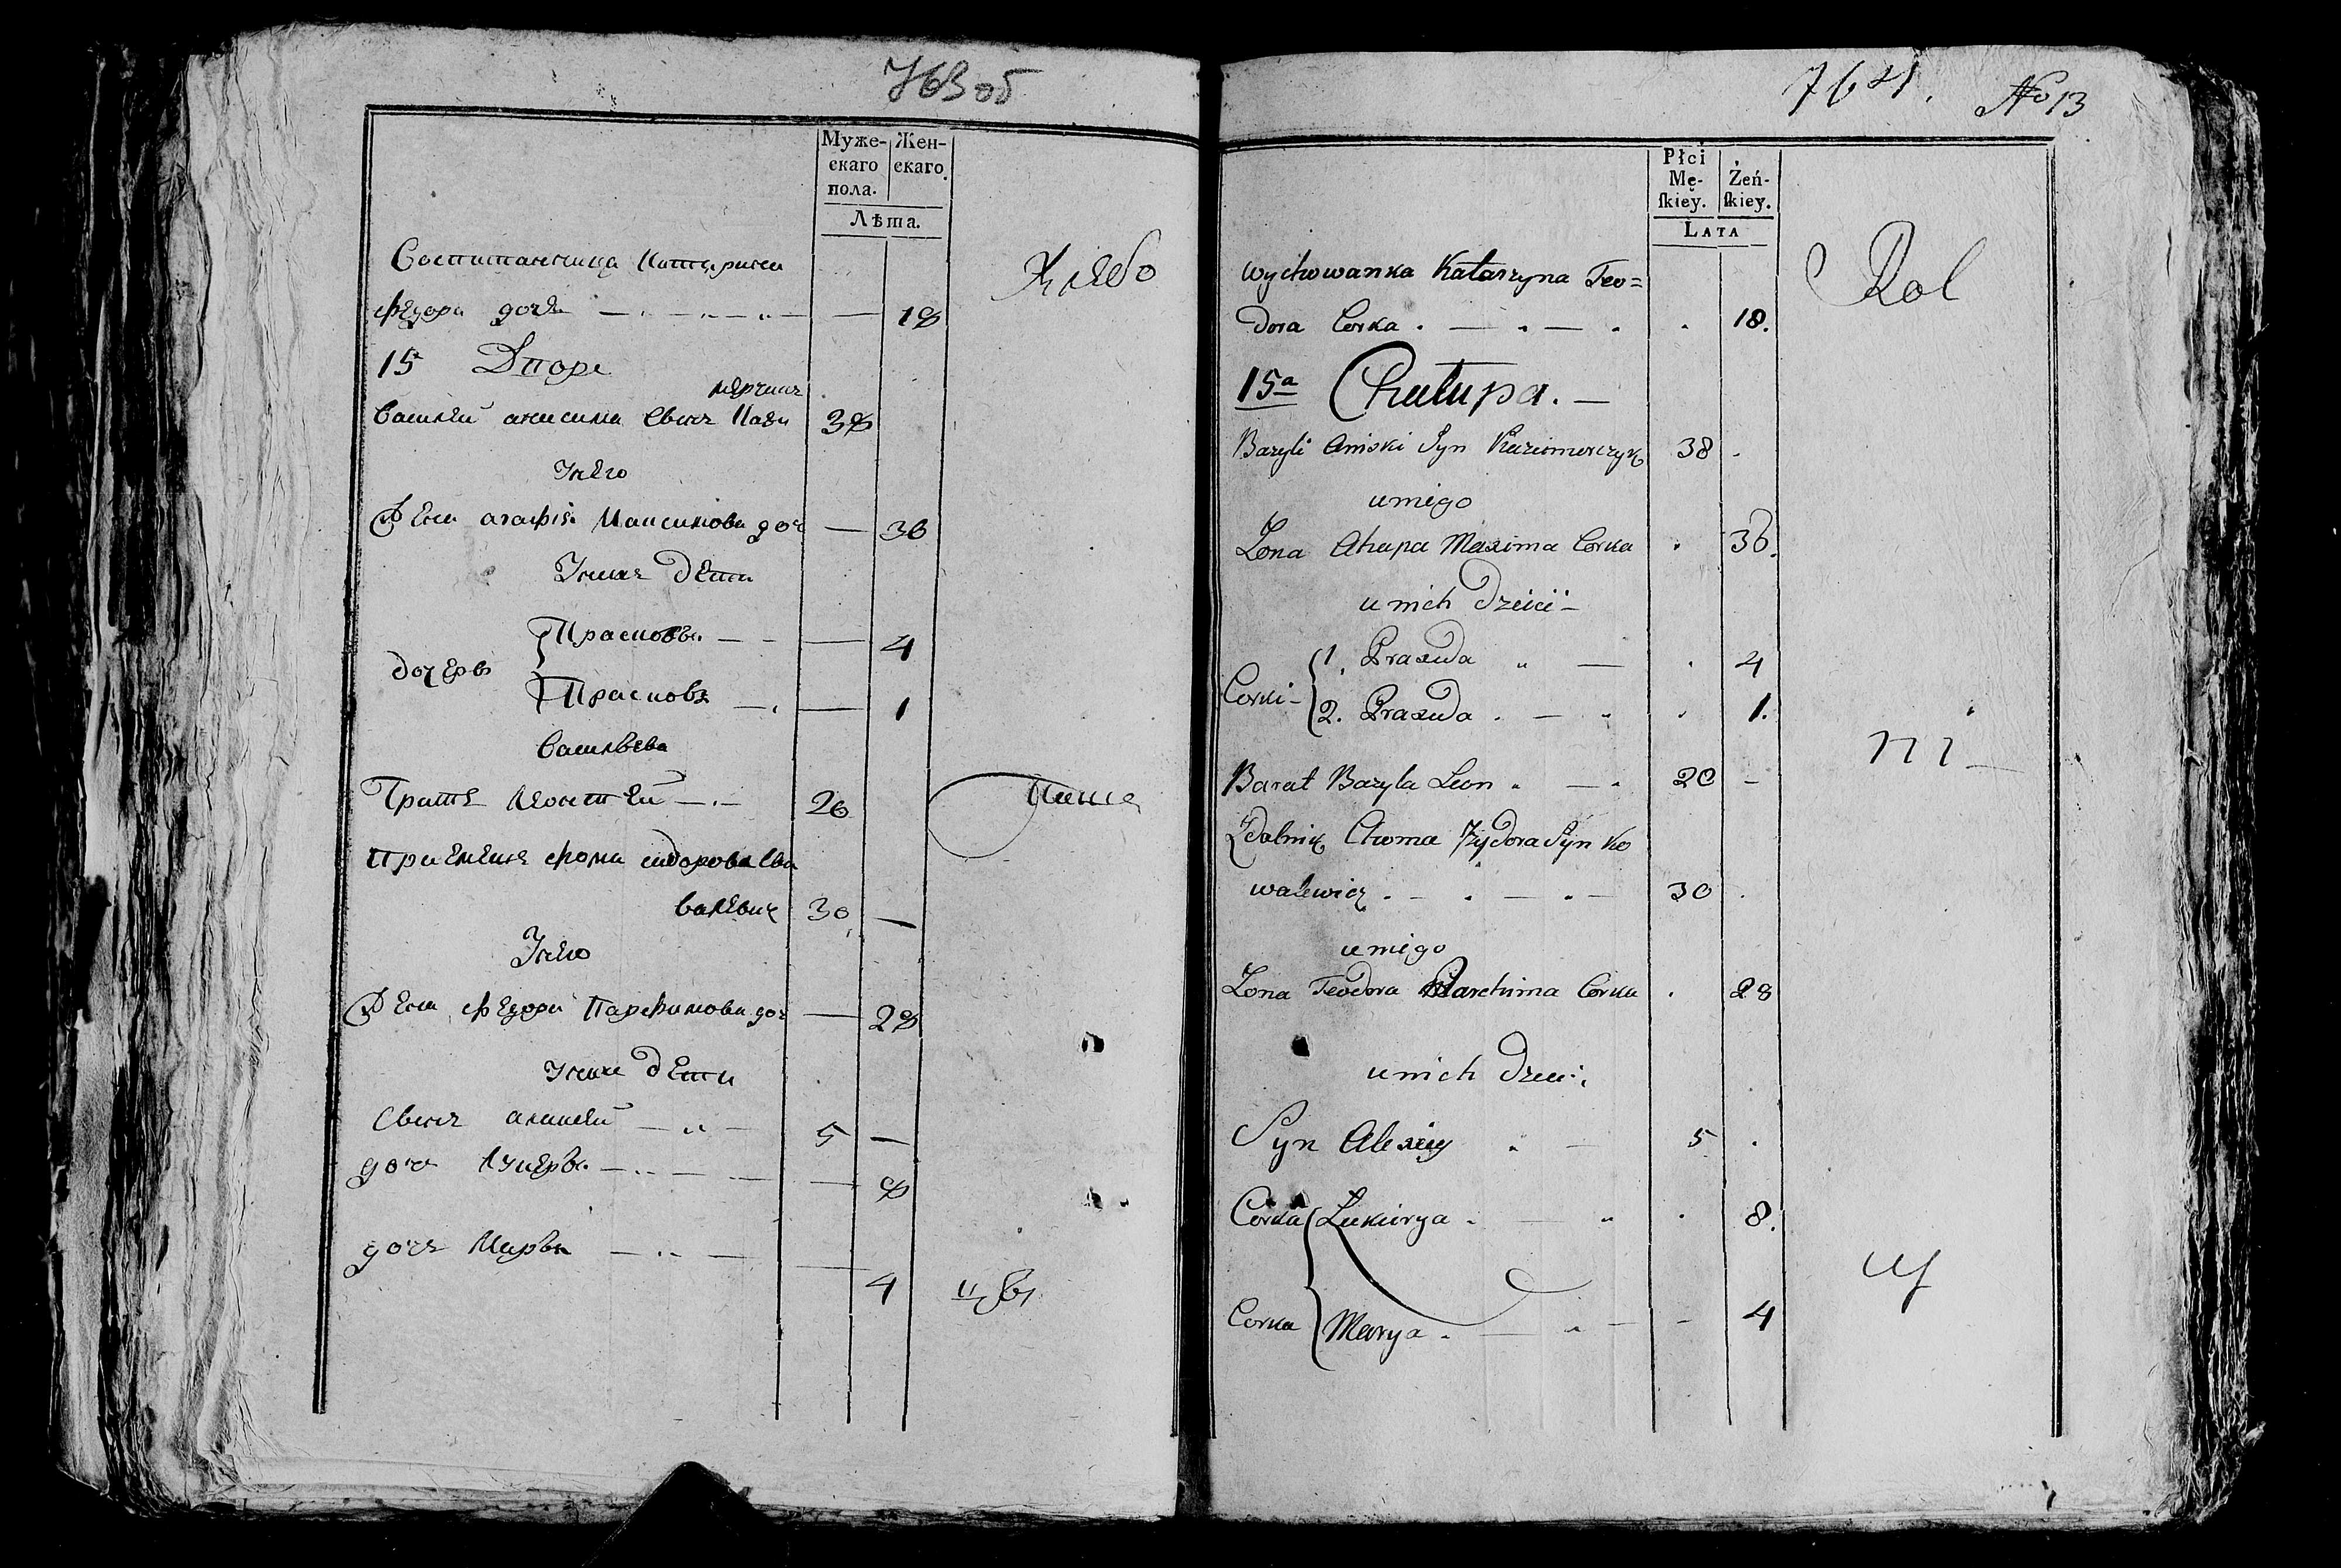 763 об
Муже-
скаго
пола.
Жен-
скаго.
Лѣта.
Воспитанница Катерина
федора дочь 18
Хлебо
15 Дворе
Василей анисима Свинъ Кази
мерчикъ 38
Унего
Жена агафія Максимова доч 36
Унихъ дети
дочерь Прасковья 4
Прасковя 1
Васильева
Пратъ Леонтей 20
Паше
Приемышъ фома сидорова Сва
валевич 30
Унего
Жена федора Парфимова доч 28
Унихъ дети
Свинъ алексей 5
дочь Лукерья 8
дочь Марья 4
цы
7641. No 13
Płci
Mę-
skiey.
Żeń-
skiey.
LATA
Wychowanka Katarzyna Teo=
dora Corka 18.
Rol
15a Chałupa.
Bazyli Aniski Syn Kazimerczyk 38
uniego
Zona Ahapa Maxima Corka 36.
unich Dzieci
Corki 1. Praxeda 4
2. Praxeda 1.
ni
Barat Bazyla Leon 20
Zdolnik Choma Jzydora Syn Ko
walewicz 30
uniego
Zona Teodora Parchima Corka 28
unich Dzieci
Syn Alexiey 5
Corka Lukierya 8.
cy
Corka Marya 4